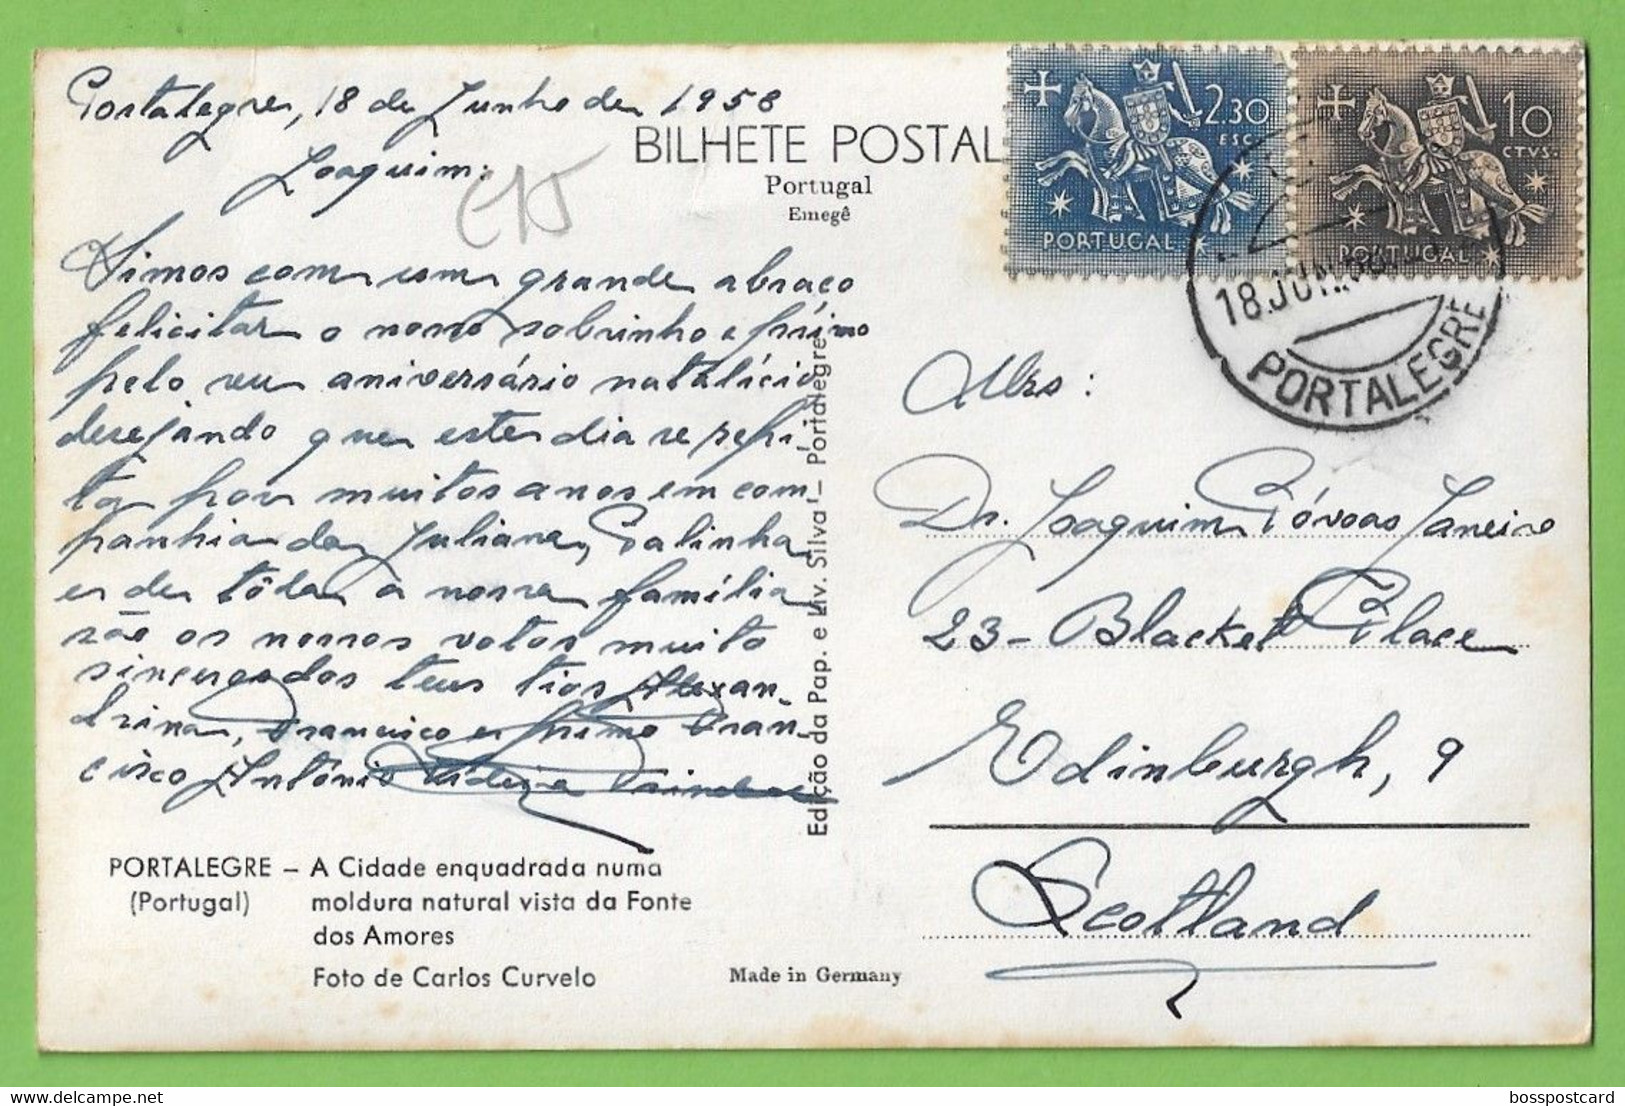 Portalegre, 18 de Junho de 1958
Joaquim:
Vimos com um grande abraço
felicitar o nosso sobrinho e primo
pelo seu aniversário natalício
desejando que este dia se repi-
ta por muitos anos em com-
panhia da Juliana, Galinha
e de tôda a nossa família
são os nossos votos muito
sinceros dos teus tios Alexan-
drina, Francisco e primo Fran-
cisco António
PORTALEGRE – A Cidade enquadrada numa
(Portugal) moldura natural vista da Fonte
dos Amores
Foto de Carlos Curvelo
Made in Germany
BILHETE POSTAL
Portugal
Emegê
Edição da Pap. e Liv. Silva – Portalegre
2.30
ESC.
PORTUGAL
10
CTVS.
PORTUGAL
18.JUN.58
PORTALEGRE
Mrs:
Dr. Joaquim Póvoas Janeiro
23 – Blacket Place
Edinburgh, 9
Scotland
bosspostcard